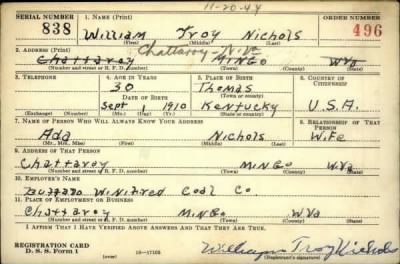 11-20-44
SERIAL NUMBER 1. NAME (Print) ORDER NUMBER
838 William Troy Nichols 496
(First) (Middle) (Last)
2. ADDRESS (Print) Chattaroy-W.Va
Chattaroy MINGO W.Va
(Number and street or R. F. D. number) (Town) (County) (State)
3. TELEPHONE 4. AGE IN YEARS 5. PLACE OF BIRTH 6. COUNTRY OF CITIZENSHIP
30 Thomas
DATE OF BIRTH (Town or county)
Sept 1 1910 Kentucky U.S.A.
(Exchange) (Number) (Mo.) (Day) (Yr.) (State or country)
7. NAME OF PERSON WHO WILL ALWAYS KNOW YOUR ADDRESS 8. RELATIONSHIP OF THAT PERSON
Ada Nichols Wife
(Mr., Mrs., Miss) (First) (Middle) (Last)
9. ADDRESS OF THAT PERSON
Chattaroy MINGO W.Va
(Number and street or R. F. D. number) (Town) (County) (State)
10. EMPLOYER'S NAME
Buffalo Winifred Coal Co
11. PLACE OF EMPLOYMENT OR BUSINESS
Chattaroy MINGO W.Va
(Number and street or R. F. D. number) (Town) (County) (State)
I AFFIRM THAT I HAVE VERIFIED ABOVE ANSWERS AND THAT THEY ARE TRUE.
REGISTRATION CARD William Troy Nichols
D. S. S. Form 1 (over) (Registrant's signature)